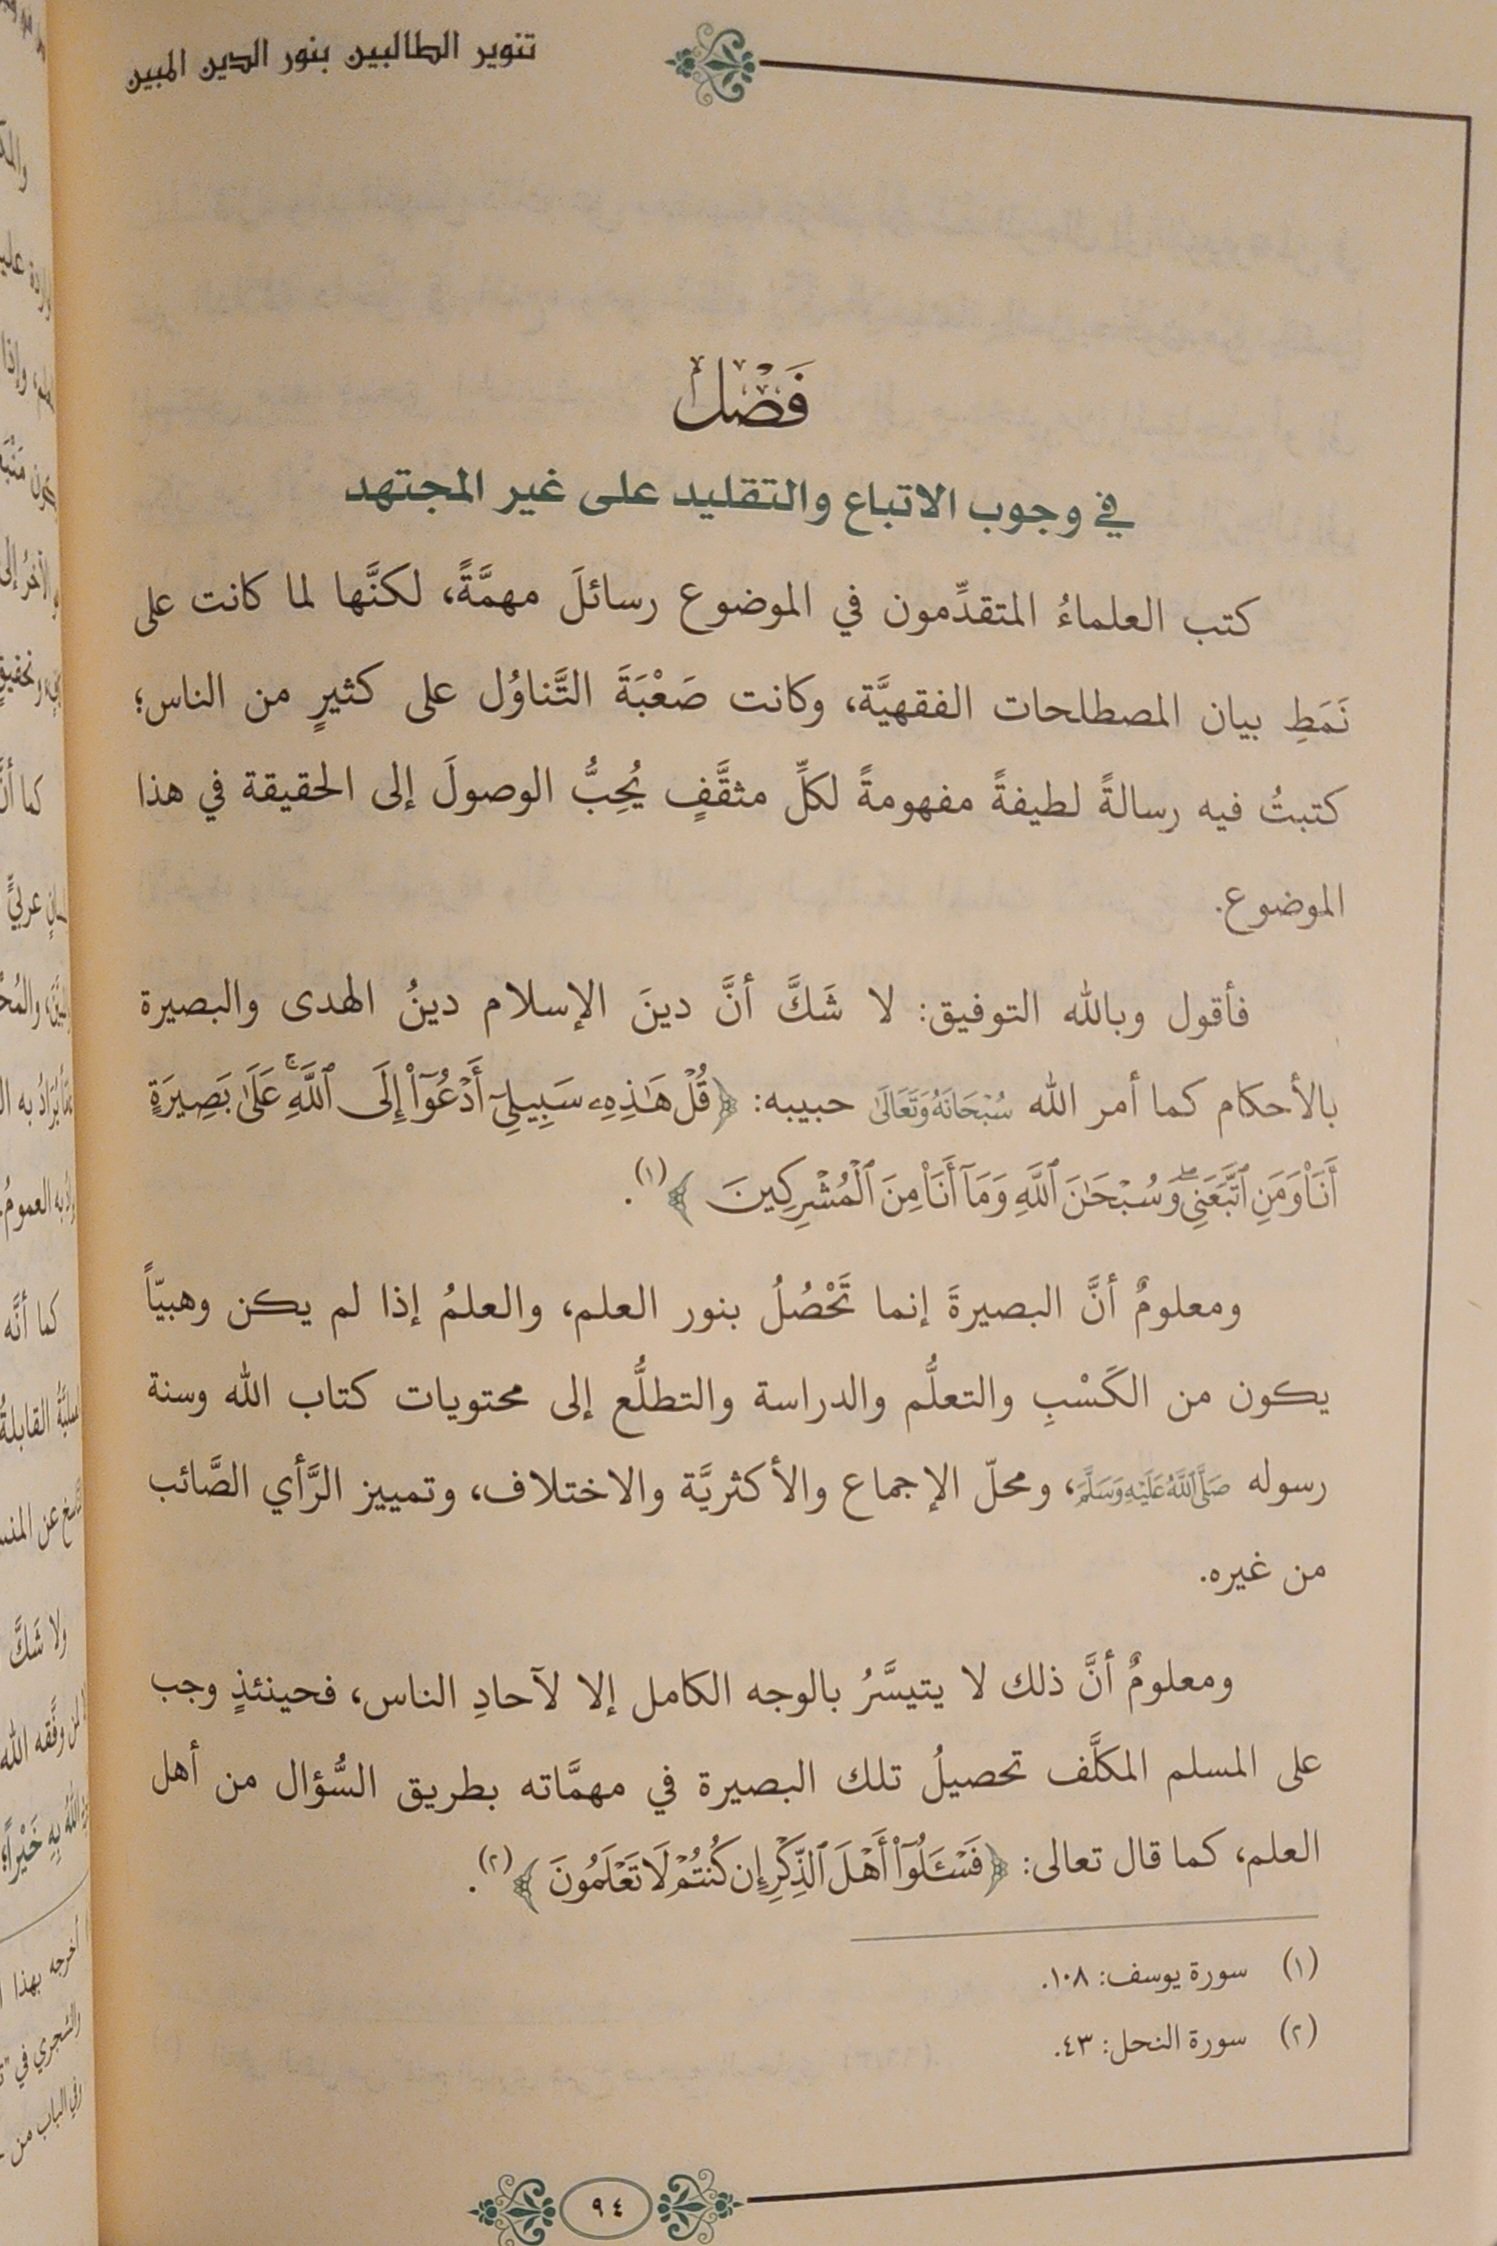 تنوير الطالبين بنور الدين المبين
فَصْلٌ
في وجوب الاتباع والتقليد على غير المجتهد
كتب العلماءُ المتقدِّمون في الموضوع رسائلَ مهمَّةً، لكنَّها لما كانت على
نَمَطِ بيان المصطلحات الفقهيَّة، وكانت صَعْبَةَ التَّناوُل على كثيرٍ من الناس؛
كتبتُ فيه رسالةً لطيفةً مفهومةً لكلِّ مثقَّفٍ يُحِبُّ الوصولَ إلى الحقيقة في هذا
الموضوع.
فأقول وبالله التوفيق: لا شَكَّ أنَّ دينَ الإسلام دينُ الهدى والبصيرة
بالأحكام كما أمر الله سُبْحَانَهُ وَتَعَالَىٰ حبيبه: ﴿قُلْ هَٰذِهِۦ سَبِيلِىٓ أَدْعُوٓا۟ إِلَى ٱللَّهِ ۚ عَلَىٰ بَصِيرَةٍ
أَنَا۠ وَمَنِ ٱتَّبَعَنِى ۖ وَسُبْحَٰنَ ٱللَّهِ وَمَآ أَنَا۠ مِنَ ٱلْمُشْرِكِينَ﴾(١).
ومعلومٌ أنَّ البصيرةَ إنما تَحْصُلُ بنور العلم، والعلمُ إذا لم يكن وهبيّاً
يكون من الكَسْبِ والتعلُّم والدراسة والتطلُّع إلى محتويات كتاب الله وسنة
رسوله صَلَّى ٱللَّهُ عَلَيْهِ وَسَلَّمَ، ومحلّ الإجماع والأكثريَّة والاختلاف، وتمييز الرَّأي الصَّائب
من غيره.
ومعلومٌ أنَّ ذلك لا يتيسَّرُ بالوجه الكامل إلا لآحادِ الناس، فحينئذٍ وجب
على المسلم المكلَّف تحصيلُ تلك البصيرة في مهمَّاته بطريق السُّؤال من أهل
العلم، كما قال تعالى: ﴿فَسْـَٔلُوٓا۟ أَهْلَ ٱلذِّكْرِ إِن كُنتُمْ لَا تَعْلَمُونَ﴾(٢).
(١) سورة يوسف: ١٠٨.
(٢) سورة النحل: ٤٣.
٩٤